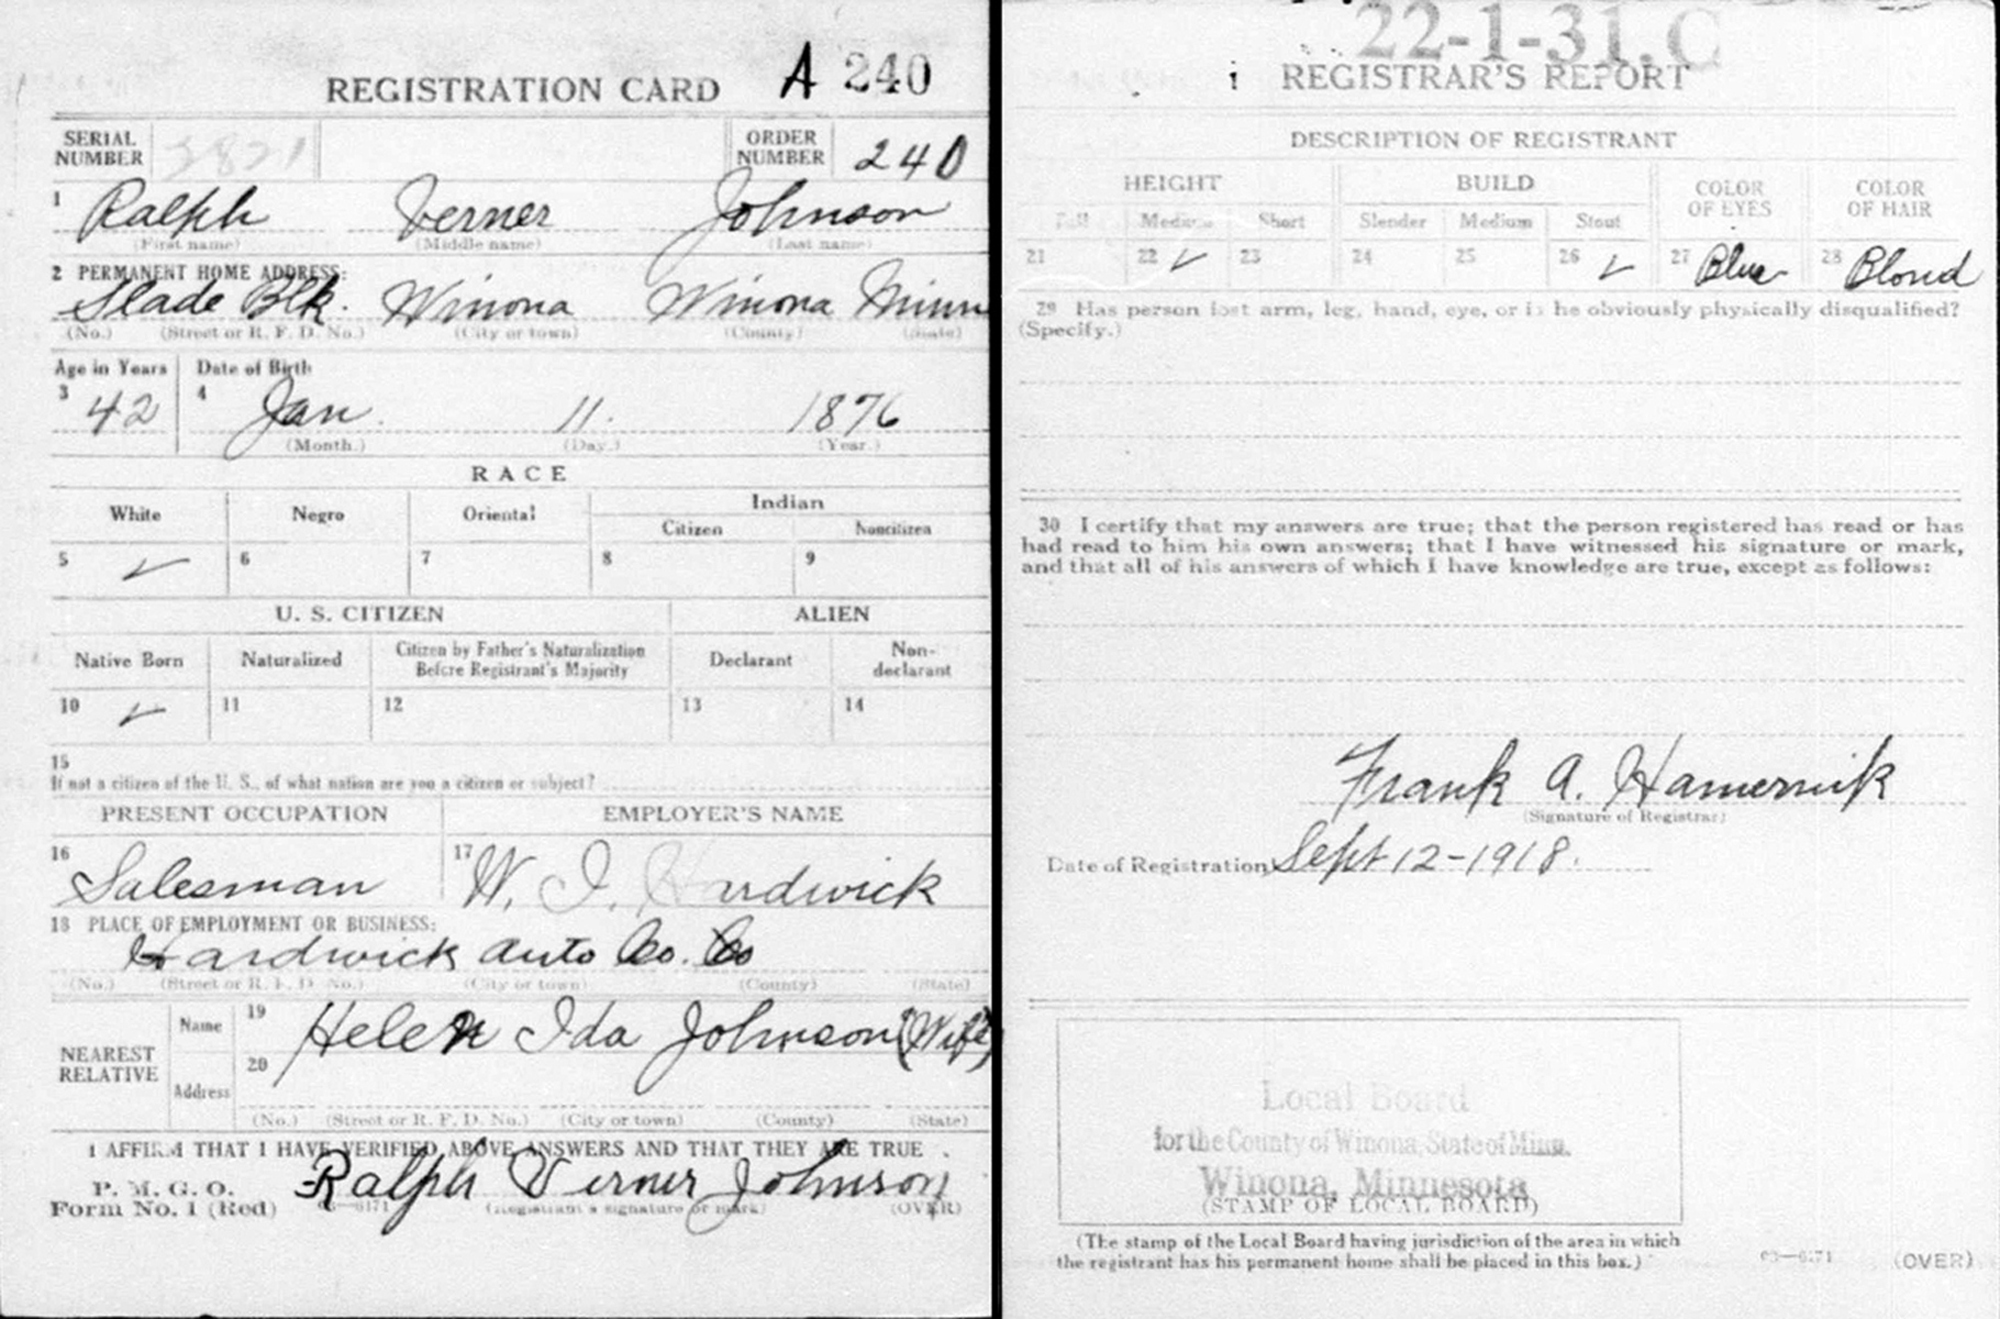 REGISTRATION CARD A 240
SERIAL NUMBER 3821 ORDER NUMBER 240
1 Ralph Verner Johnson
(First name) (Middle name) (Last name)
2 PERMANENT HOME ADDRESS:
Slade Blk. Winona Winona Minn
(No.) (Street or R. F. D. No.) (City or town) (County) (State)
Age in Years Date of Birth
3 42 4 Jan. 11. 1876
(Month.) (Day.) (Year.)
RACE
White Negro Oriental Indian
Citizen Noncitizen
5 ✓ 6 7 8 9
U. S. CITIZEN ALIEN
Native Born Naturalized Citizen by Father's Naturalization Before Registrant's Majority Declarant Non-declarant
10 ✓ 11 12 13 14
15
If not a citizen of the U. S., of what nation are you a citizen or subject?
PRESENT OCCUPATION EMPLOYER'S NAME
16 Salesman 17 W. I. Hardwick
18 PLACE OF EMPLOYMENT OR BUSINESS:
Hardwick Auto Co. Co
(No.) (Street or R. F. D. No.) (City or town) (County) (State)
NEAREST RELATIVE
Name 19 Helen Ida Johnson (Wife)
Address 20
(No.) (Street or R. F. D. No.) (City or town) (County) (State)
I AFFIRM THAT I HAVE VERIFIED ABOVE ANSWERS AND THAT THEY ARE TRUE
P. M. G. O.
Form No. 1 (Red) 03—6171 Ralph Verner Johnson
(Registrant's signature or mark) (OVER)
22-1-31.C
REGISTRAR'S REPORT
DESCRIPTION OF REGISTRANT
HEIGHT BUILD COLOR OF EYES COLOR OF HAIR
Tall Medium Short Slender Medium Stout
21 22 ✓ 23 24 25 26 ✓ 27 Blue 28 Blond
29 Has person lost arm, leg, hand, eye, or is he obviously physically disqualified?
(Specify.)
30 I certify that my answers are true; that the person registered has read or has
had read to him his own answers; that I have witnessed his signature or mark,
and that all of his answers of which I have knowledge are true, except as follows:
Frank A. Hamernik
(Signature of Registrar)
Date of Registration Sept 12-1918.
Local Board
for the County of Winona, State of Minn.
Winona, Minnesota
(STAMP OF LOCAL BOARD)
(The stamp of the Local Board having jurisdiction of the area in which
the registrant has his permanent home shall be placed in this box.)
03—6171 (OVER)